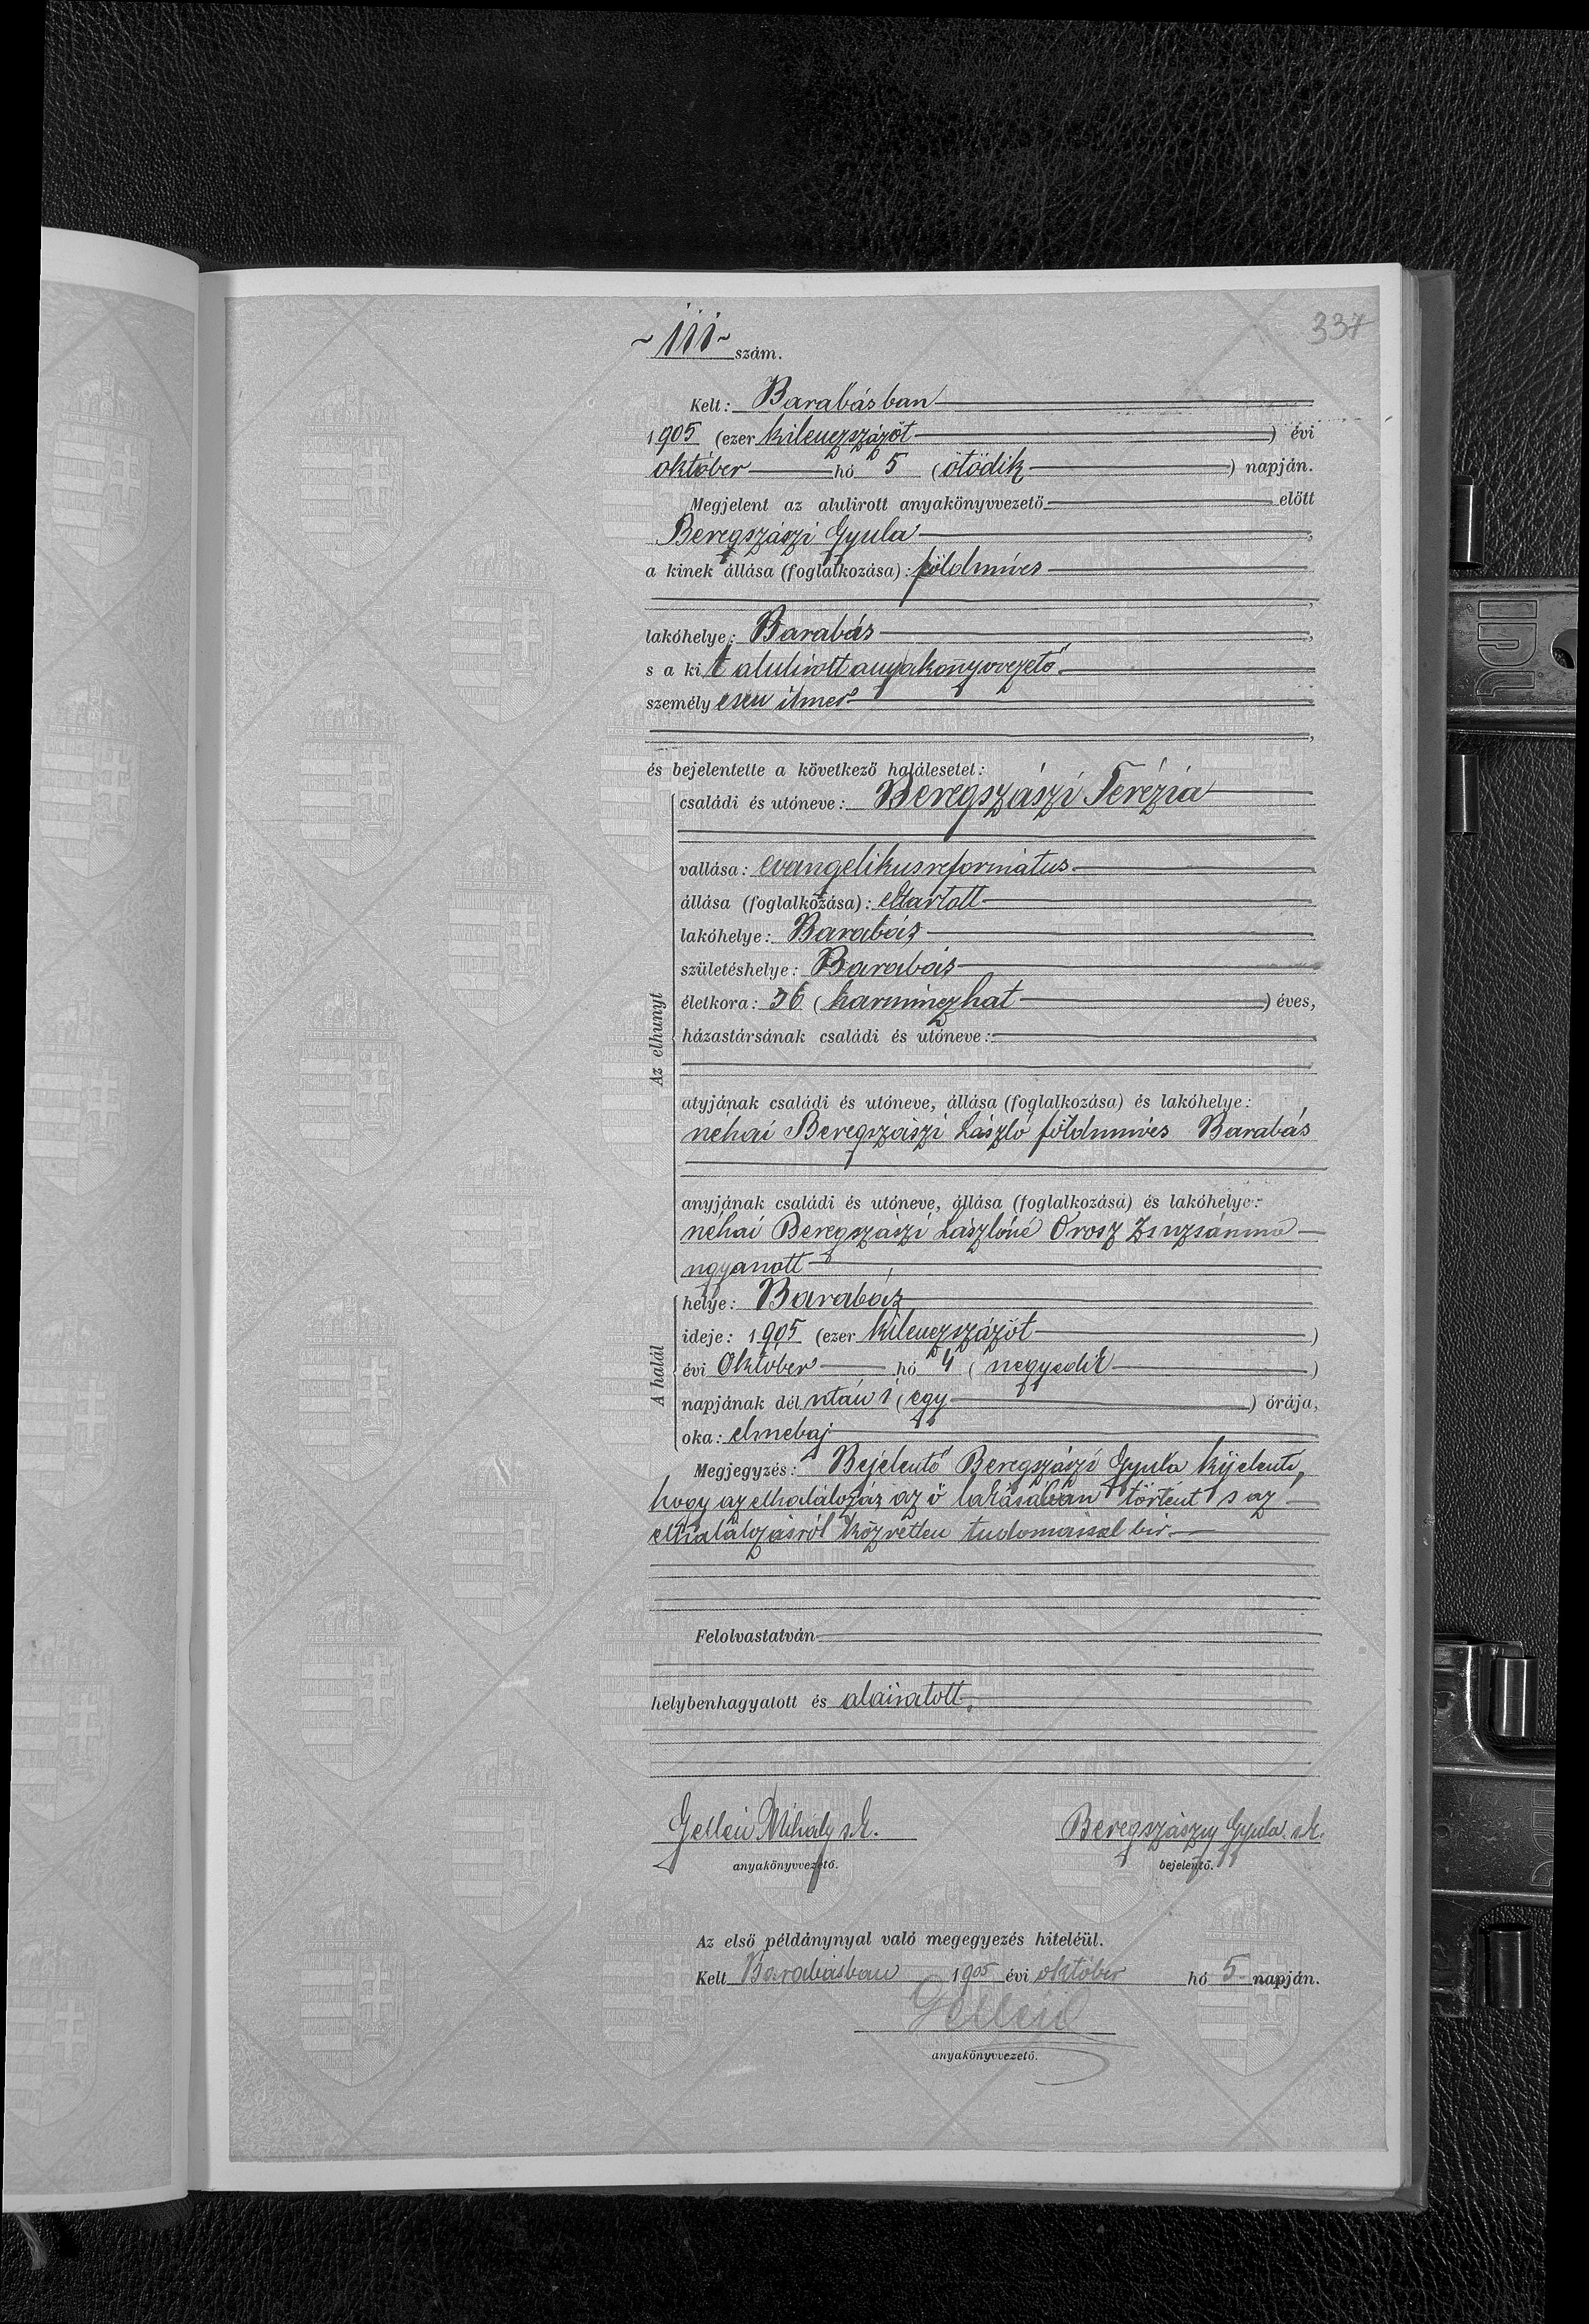 337
~ 111 ~ szám.
Kelt: Barabásban
1905 (ezer kilenczszázöt ) évi
október hó 5 (ötödik ) napján.
Megjelent az alulirott anyakönyvvezető előtt
Beregszászi Gyula,
a kinek állása (foglalkozása): földmíves
,
lakóhelye: Barabás,
s a kit alulirott anyakönyvvezető
személyesen ismer
,
és bejelentette a következő halálesetet:
Az elhunyt
családi és utóneve: Beregszászi Terézia
vallása: evangelikus református
állása (foglalkozása): eltartott
lakóhelye: Barabás
születéshelye: Barabás
életkora: 36 (harminczhat ) éves,
házastársának családi és utóneve:
atyjának családi és utóneve, állása (foglalkozása) és lakóhelye:
néhai Beregszászi László földmíves Barabás
anyjának családi és utóneve, állása (foglalkozása) és lakóhelye:
néhai Beregszászi Lászlóné Orosz Zsuzsánna
ugyanott
A halál
helye: Barabás
ideje: 1905 (ezer kilenczszázöt )
évi Október hó 4 ( negyedik )
napjának dél utáni 1 (egy ) órája,
oka: elmebaj
Megjegyzés: Bejelentő Beregszászi Gyula kijelenti,
hogy az elhalálozás az ő lakásában történt s az
elhalálozásról közvetlen tudomással bir.
Felolvastatván
helybenhagyatott és aláiratott.
Gelléii Mihály s.k. Beregszászy Gyula s.k.
anyakönyvvezető. bejelentő.
Az első példánynyal való megegyezés hiteléül.
Kelt Barabásban 1905 évi október hó 5 napján.
anyakönyvvezető.